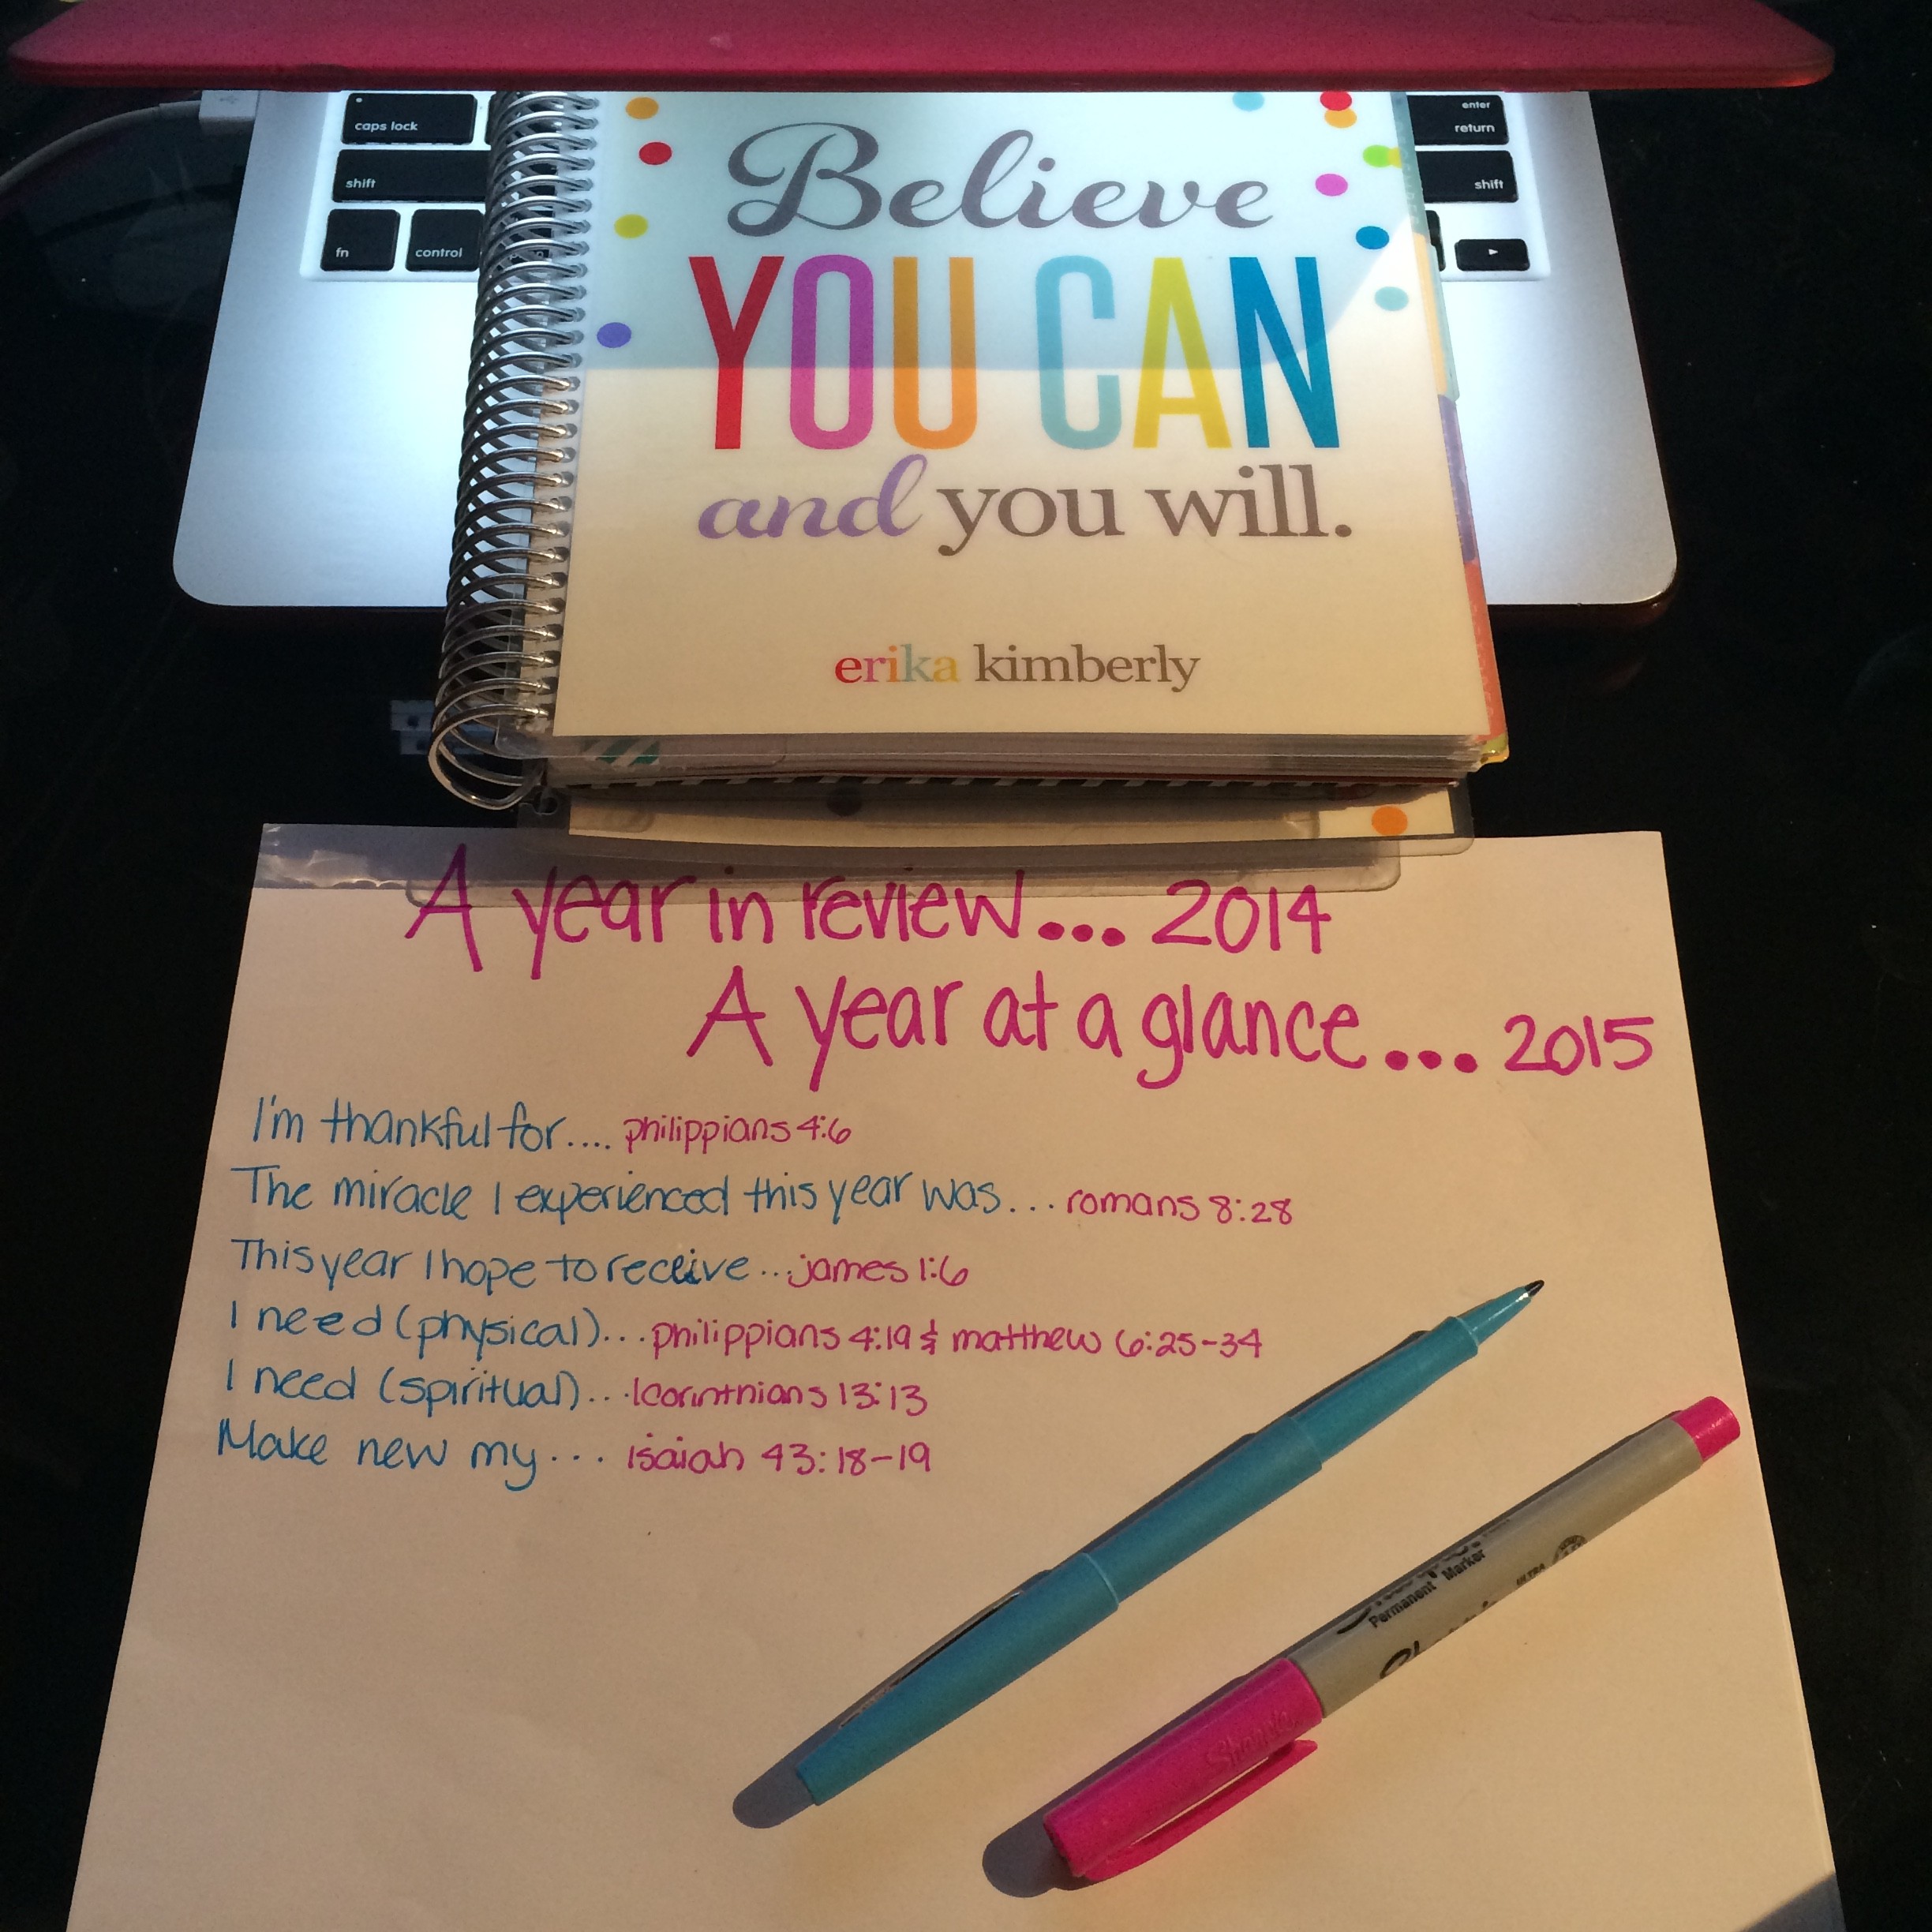 caps lock
enter
return
shift
shift
fn
control
Believe
YOU CAN
and you will.
erika kimberly
A year in review... 2014
A year at a glance... 2015
I'm thankful for.... philippians 4:6
The miracle I experienced this year was... romans 8:28
This year I hope to receive... james 1:6
I need (physical)... philippians 4:19 & matthew 6:25-34
I need (spiritual)... 1corinthians 13:13
Make new my... isaiah 43:18-19
Permanent Marker
ULTRA
Sharpie